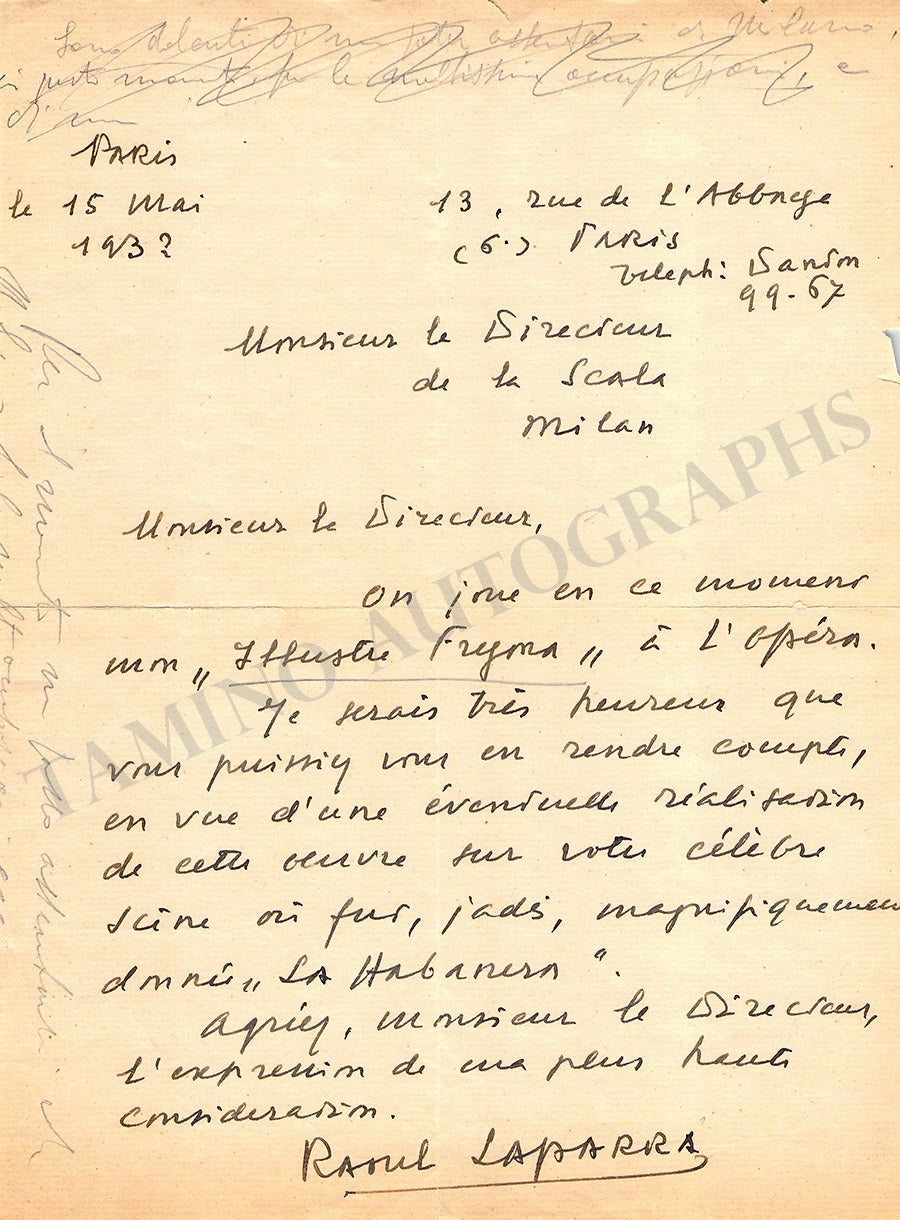 Sono dolenti di non poter assentarsi di Milano,
per le moltissime occupazioni, e
PARIS
le 15 Mai
1932
13, rue de L'Abbaye
(6.) PARIS
Teleph: Danton
99-67
Monsieur le Directeur
de la Scala
Milan
Monsieur le Directeur,
On joue en ce moment
mon „Illustre Fregona„ à L'Opéra.
Je serais très heureux que
vous puissiez vous en rendre compte,
en vue d'une éventuelle réalisation
de cette oeuvre sur votre célèbre
scène où fut, jadis, magnifiquement
donnée „La Habanera".
Agréez, Monsieur le Directeur,
l'expression de ma plus haute
consideration.
RAOUL LAPARRA
TAMINO AUTOGRAPHS